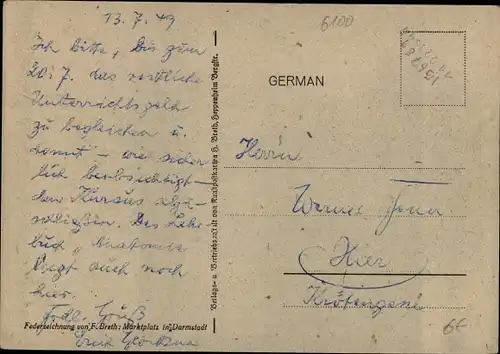 13.7.49
6100
Ich bitte, bis zum
20.7. das restliche
Unterrichtsgeld
zu begleichen u.
damit – wie sicher
lich beabsichtigt –
den Kursus abzu
schließen. Das Lehr
buch „Anatomie
liegt auch noch
hier.
Gruß
Federzeichnung von F. Breth: Marktplatz in Darmstadt
Verlags- u. Vertriebsanstalt von Kunstpostkarten H. Breth, Heppenheim Bergstr.
GERMAN
Herrn
Werner
Hier
6F